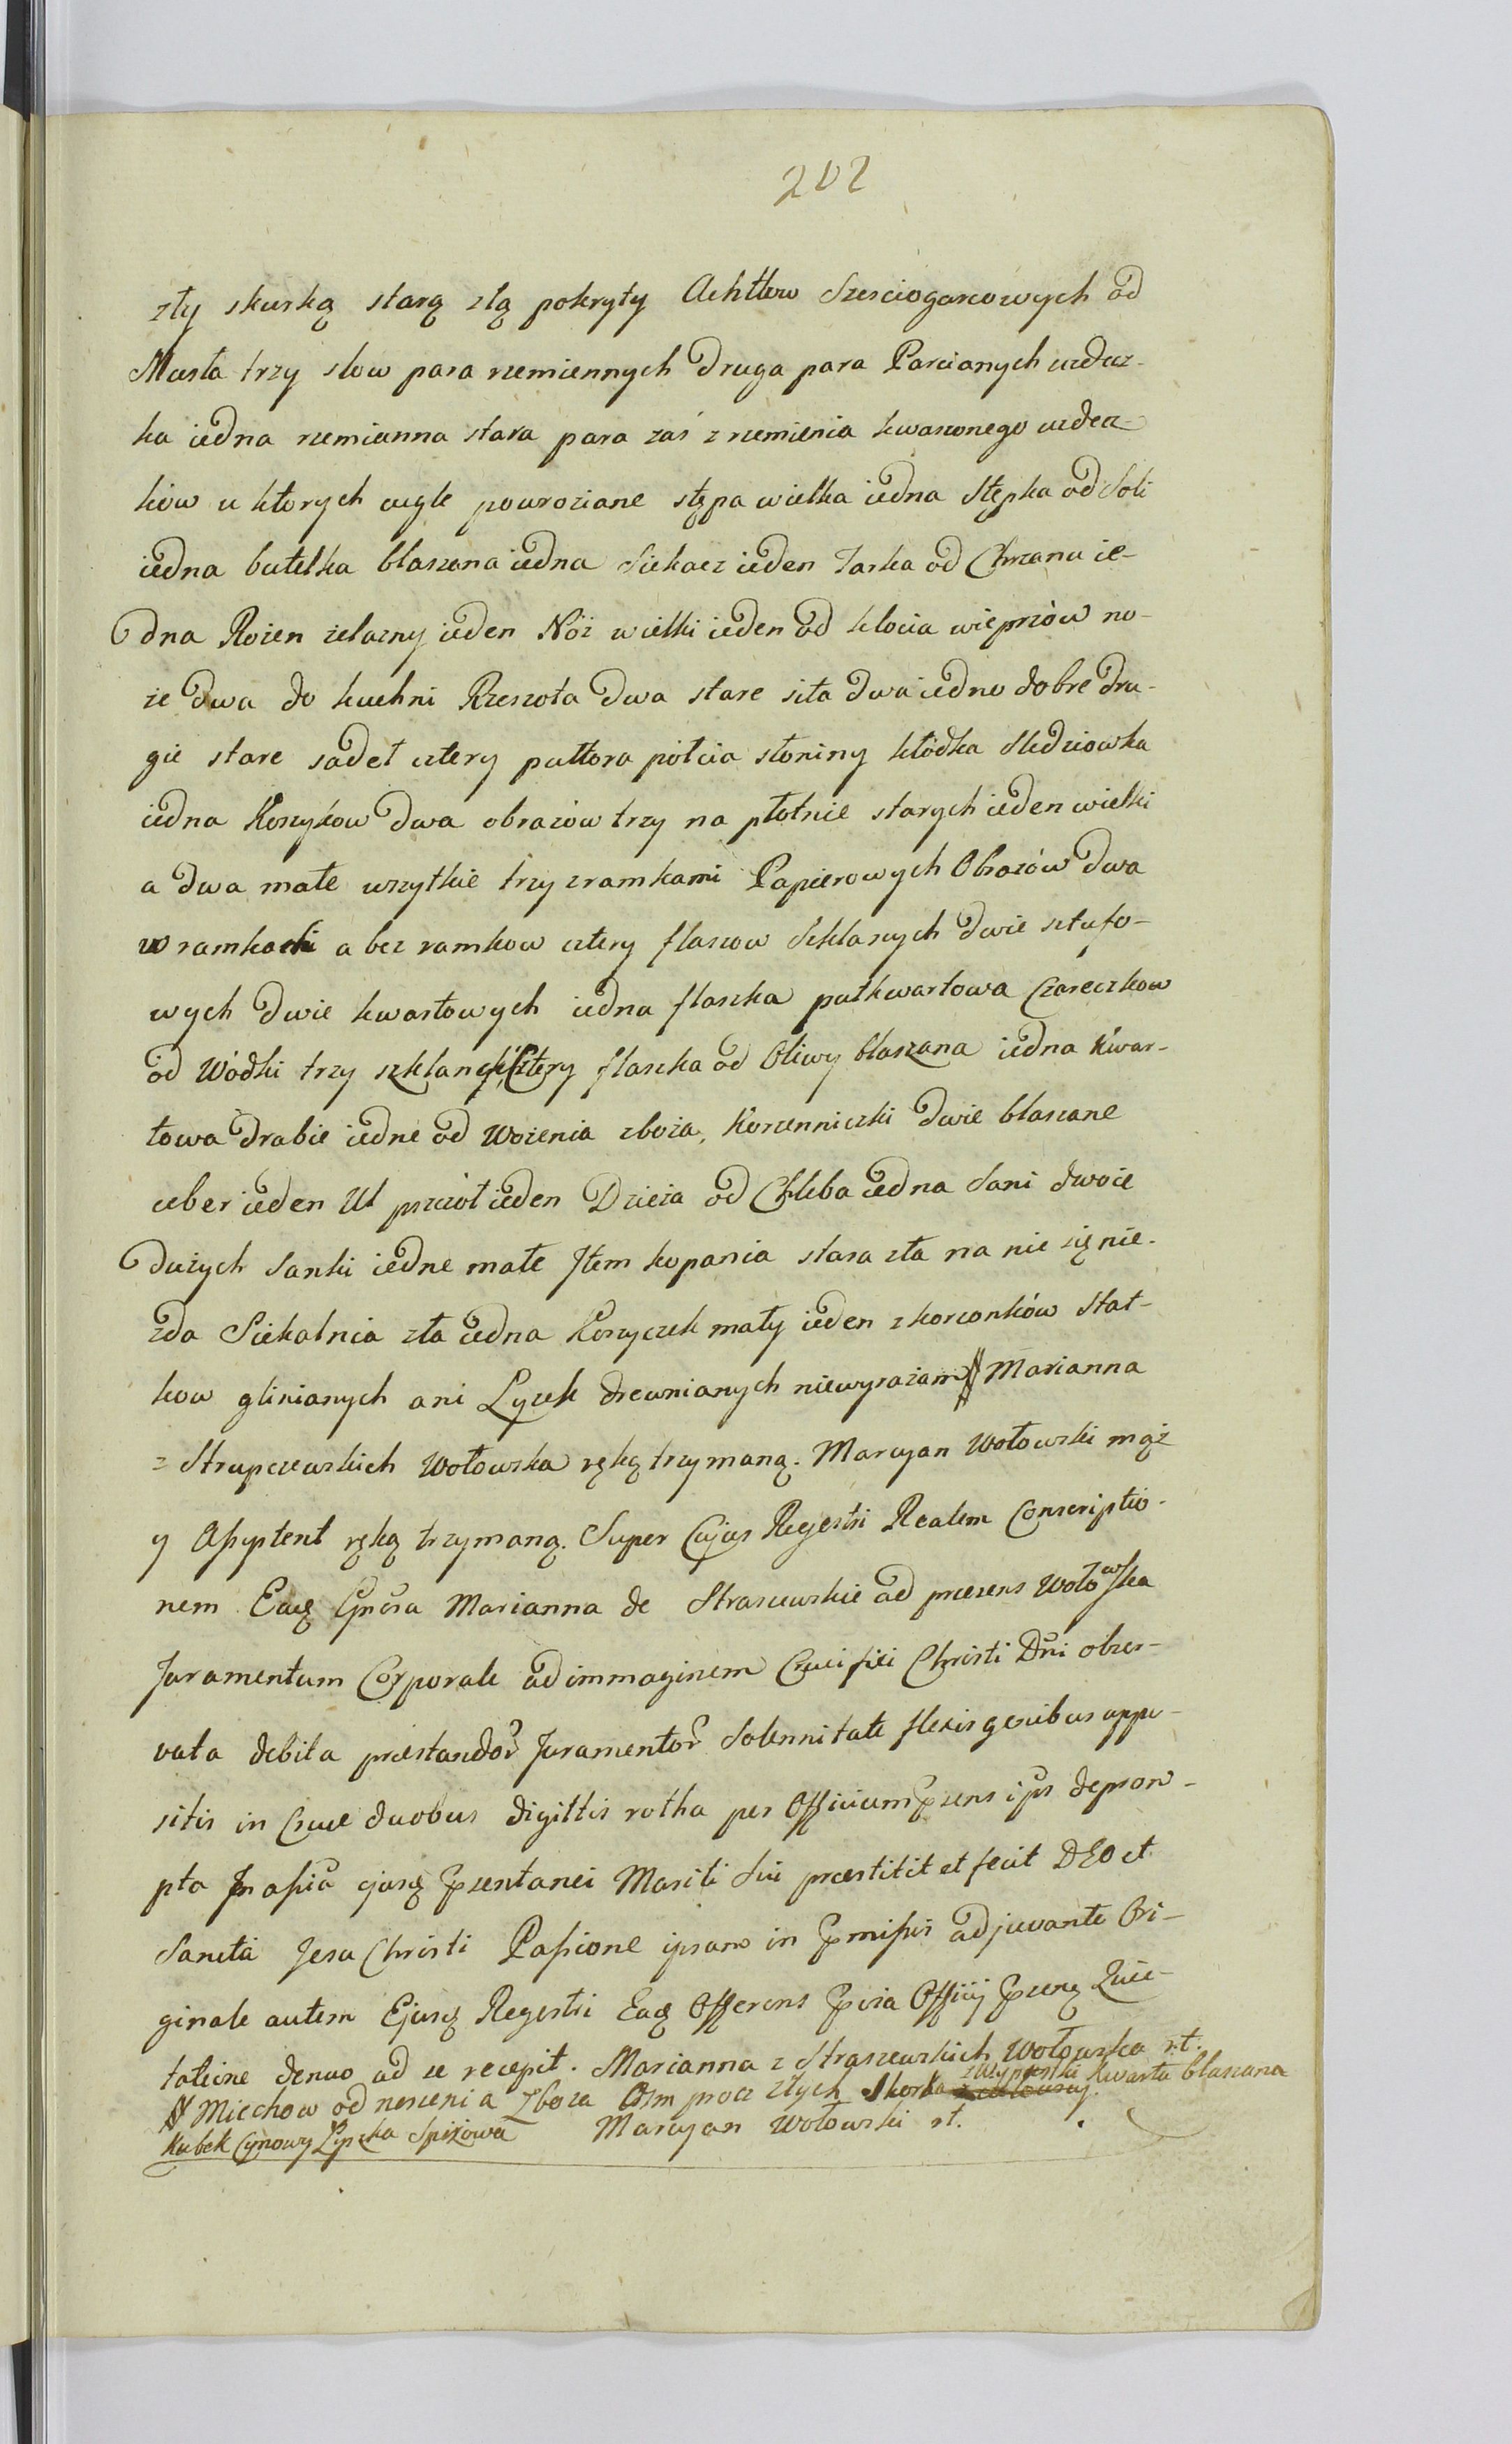 202
zły skurką starą złą pokryty Achtlow Szesciogarcowych od
Masła trzy slow para rzemiennych druga para Parcianych uzdecz-
ka iedna rzemianna stara para zaś z rzemienia kwaszonego uzdecz-
ków u ktorych cugle powroziane stępa wielka iedna Stępka od Soli
iedna butelka blaszana iedna Siekacz ieden Tarka od Chrzanu ie-
dna Rożen żelazny ieden Nóż wielki ieden od klocia wieprzów no-
że dwa do kuchni Rzeszota dwa stare sita dwa iedno dobre dru-
gie stare sadeł cztery pułtora półcia słoniny kłódka Sledziowka
iedna Koszyków dwa obrazów trzy na płotnie starych ieden wielki
a dwa małe wszytkie trzy z ramkami Papierowych Obrazów dwa
w ramkach a bez ramkow cztery flaszow Szklanych dwie sztufo-
wych dwie kwartowych iedna flaszka pułkwartowa Czareczkow
od Wódki trzy szklanek Cztery flaszka od Oliwy blaszana iedna Kwar-
towa drabie iedne od Wożenia zboża, Korzenniczki dwie blaszane
ceber ieden Ul pszczół ieden Dzieża od Chleba iedna Sani dwoie
dużych Sanki iedne małe Item kopania stara zła na nic się nie-
zda Siekalnia zła iedna Koszyczek mały ieden z korzonków Stat-
kow glinianych ani Łyżek drewnianych niewyrażam Marianna
z Strupczewskich Wołowska ręką trzymaną. Marcyan Wołowski mąż
y Assystent ręką trzymaną. Super Cujus Regestri Realem Conscriptio-
nem Eadq Gnosa Marianna de Straszewskie ad praesens Wołowska
Juramentum Corporale ad immaginem Crucifixi Christi Dni obser-
vata debita praestandor Juramentor Solennitate flexis genibus appo-
sitis in Cruce duobus digittis rotha per Officium Przens ipsi depron-
pta In assia ejusq Przentanei Mariti Sui praestitit et fecit DEO et
Sancta Jesu Christi Passione ipsam in Prmissis adjuvante Ori-
ginale autem Ejusq Regestri Eadq Offerens Officij Quie-
tatione denuo ad se recepit. Marianna z Straszewskich Wołowska r.t.
Miechow od noszenia Zboza Osm procz Złych Skorka z Wyprawki Kwarta blaszana
Kubek Cynowy Łyszka Spiżowa Marcyan Wołowski r.t.